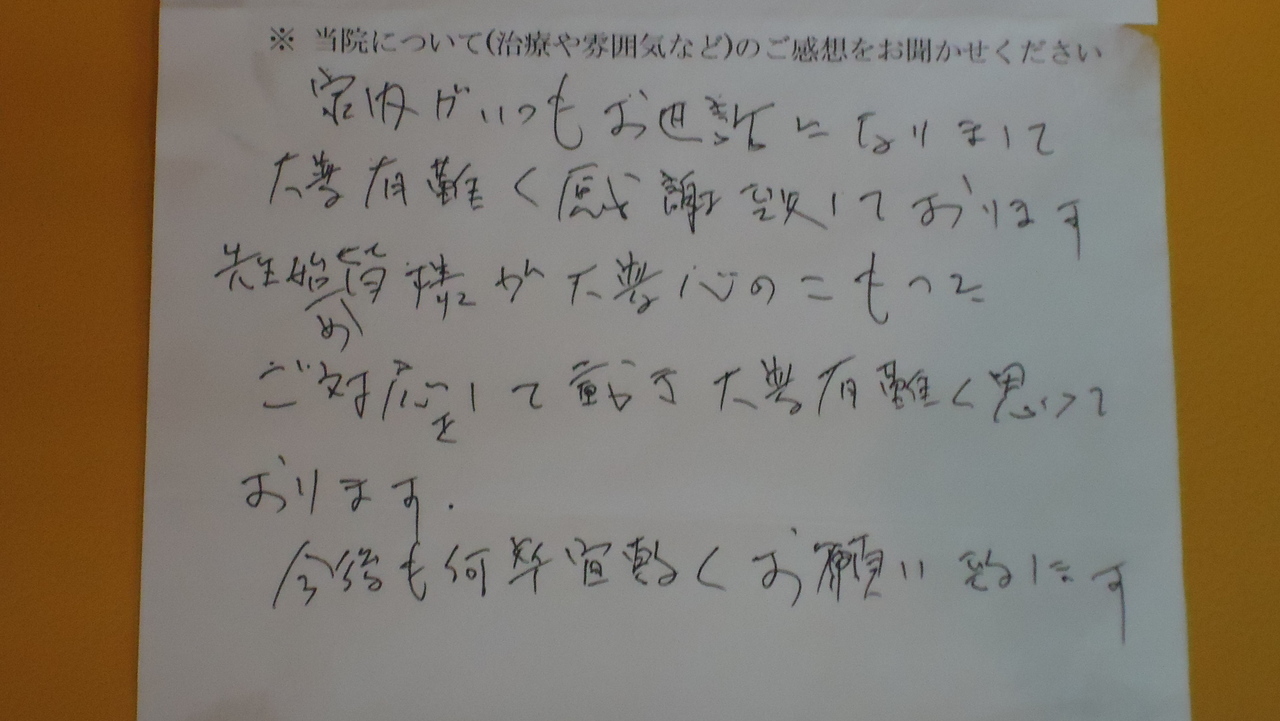 ※ 当院について(治療や雰囲気など)のご感想をお聞かせください
家内がいつもお世話になりまして
大変有難く感謝致しております
先生始め皆様が大変心のこもった
ご対応をして戴き大変有難く思って
おります.
今後も何卒宜敷くお願い致します